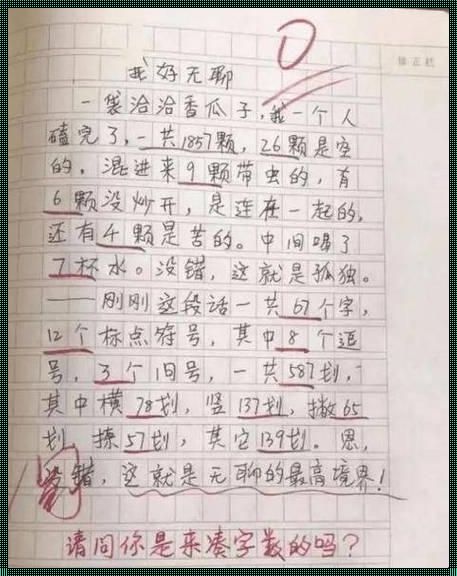 0
我好无聊
修正栏
一袋洽洽香瓜子，我一个人
磕完了，一共1857颗，26颗是空
的，混进来9颗带虫的，有
6颗没炒开，是连在一起的，
还有4颗是苦的。中间喝了
7杯水。没错，这就是孤独。
——刚刚这段话一共67个字，
12个标点符号，其中8个逗
号，3个旧号，一共587划，
其中横78划，竖137划，撇65
划 捺57划，其它139划。恩，
没错，这就是无聊的最高境界！
请问你是来凑字数的吗？